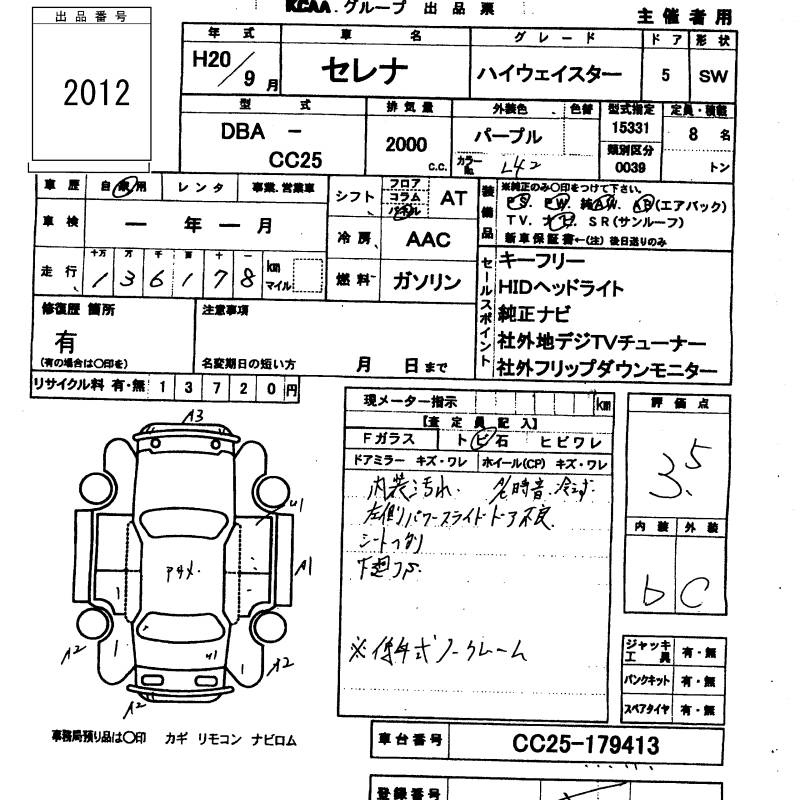 KCAA. グループ 出品票
主催者用
出品番号
2012
年式 車名 グレード ドア 形状
H20/9月 セレナ ハイウェイスター 5 SW
型式 排気量 外装色 色替 型式指定 定員・積載
DBA - CC25 2000 c.c. パープル 15331 8 名
カラーNo. L42 類別区分 0039 トン
車歴 自家用 レンタ 事業.営業車
シフト フロア コラム パネル AT
装備品 ※純正のみ〇印をつけて下さい。
PS PW 純AW AB(エアバック)
TV. ナビ. SR(サンルーフ)
新車保証書←(注) 後日送りのみ
車検 ー 年 ー 月
冷房 AAC
走行 十万 万 千 百 十 一
1 3 6 1 7 8 km マイル
燃料 ガソリン
セールスポイント
キーフリー
HIDヘッドライト
純正ナビ
社外地デジTVチューナー
社外フリップダウンモニター
修復歴 箇所
有
(有の場合は〇印を)
注意事項
名変期日の短い方 月 日まで
リサイクル料 有・無 1 3 7 2 0 円
現メーター指示 km
【査定員記入】
Fガラス トビ石 ヒビワレ
ドアミラー キズ・ワレ ホイール(CP) キズ・ワレ
内装汚れ.
左側パワースライドドア不良.
※
評価点
3.5
内装 外装
b C
A3
U1
A1
A2
A2
U1
A2
ジャッキ工具 有・無
パンクキット 有・無
スペアタイヤ 有・無
事務局預り品は〇印 カギ リモコン ナビロム
車台番号 CC25-179413
登録番号